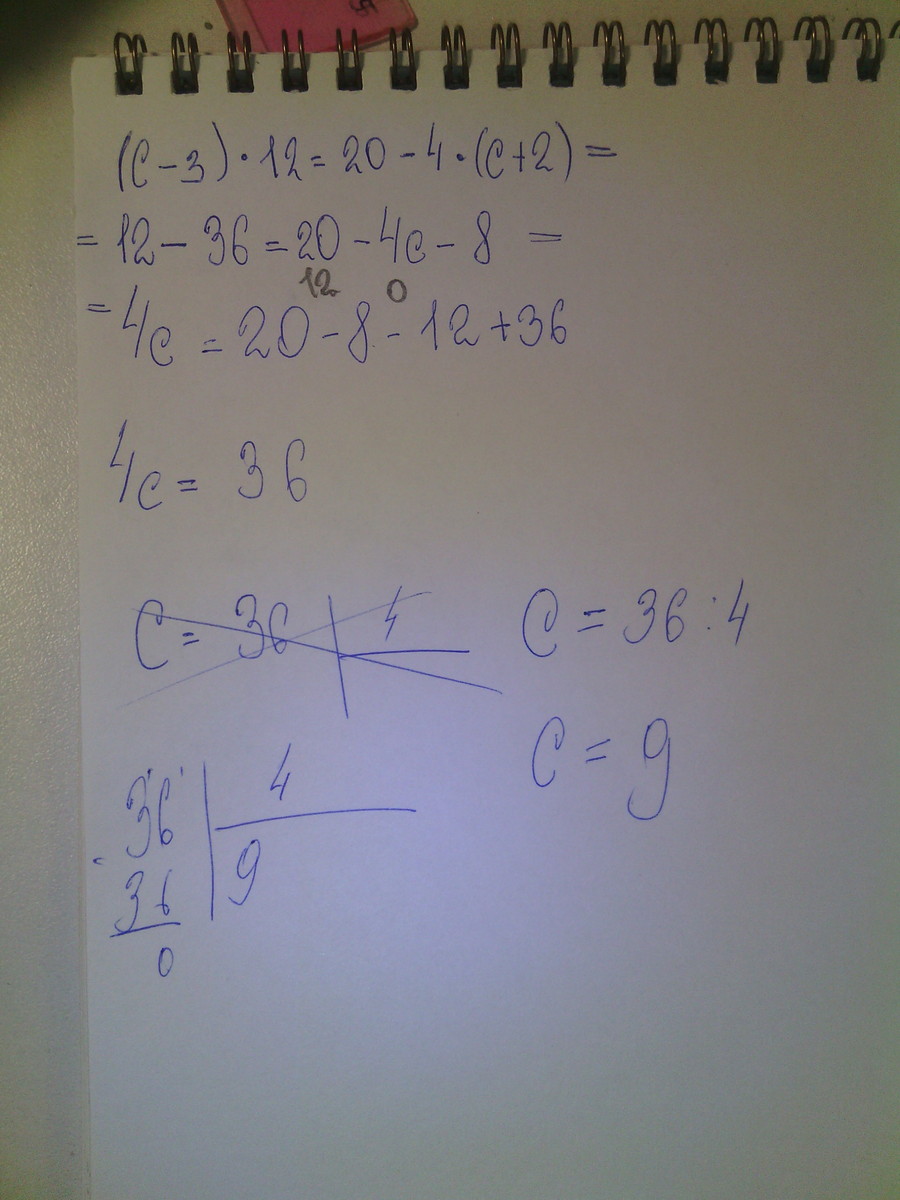 (c-3)·12=20-4·(c+2)=
=12-36=20-4c-8 =
12 0
=4c=20-8-12+36
4c= 36
C= 36 4
C=36:4
C=9
36 4
36 9
0